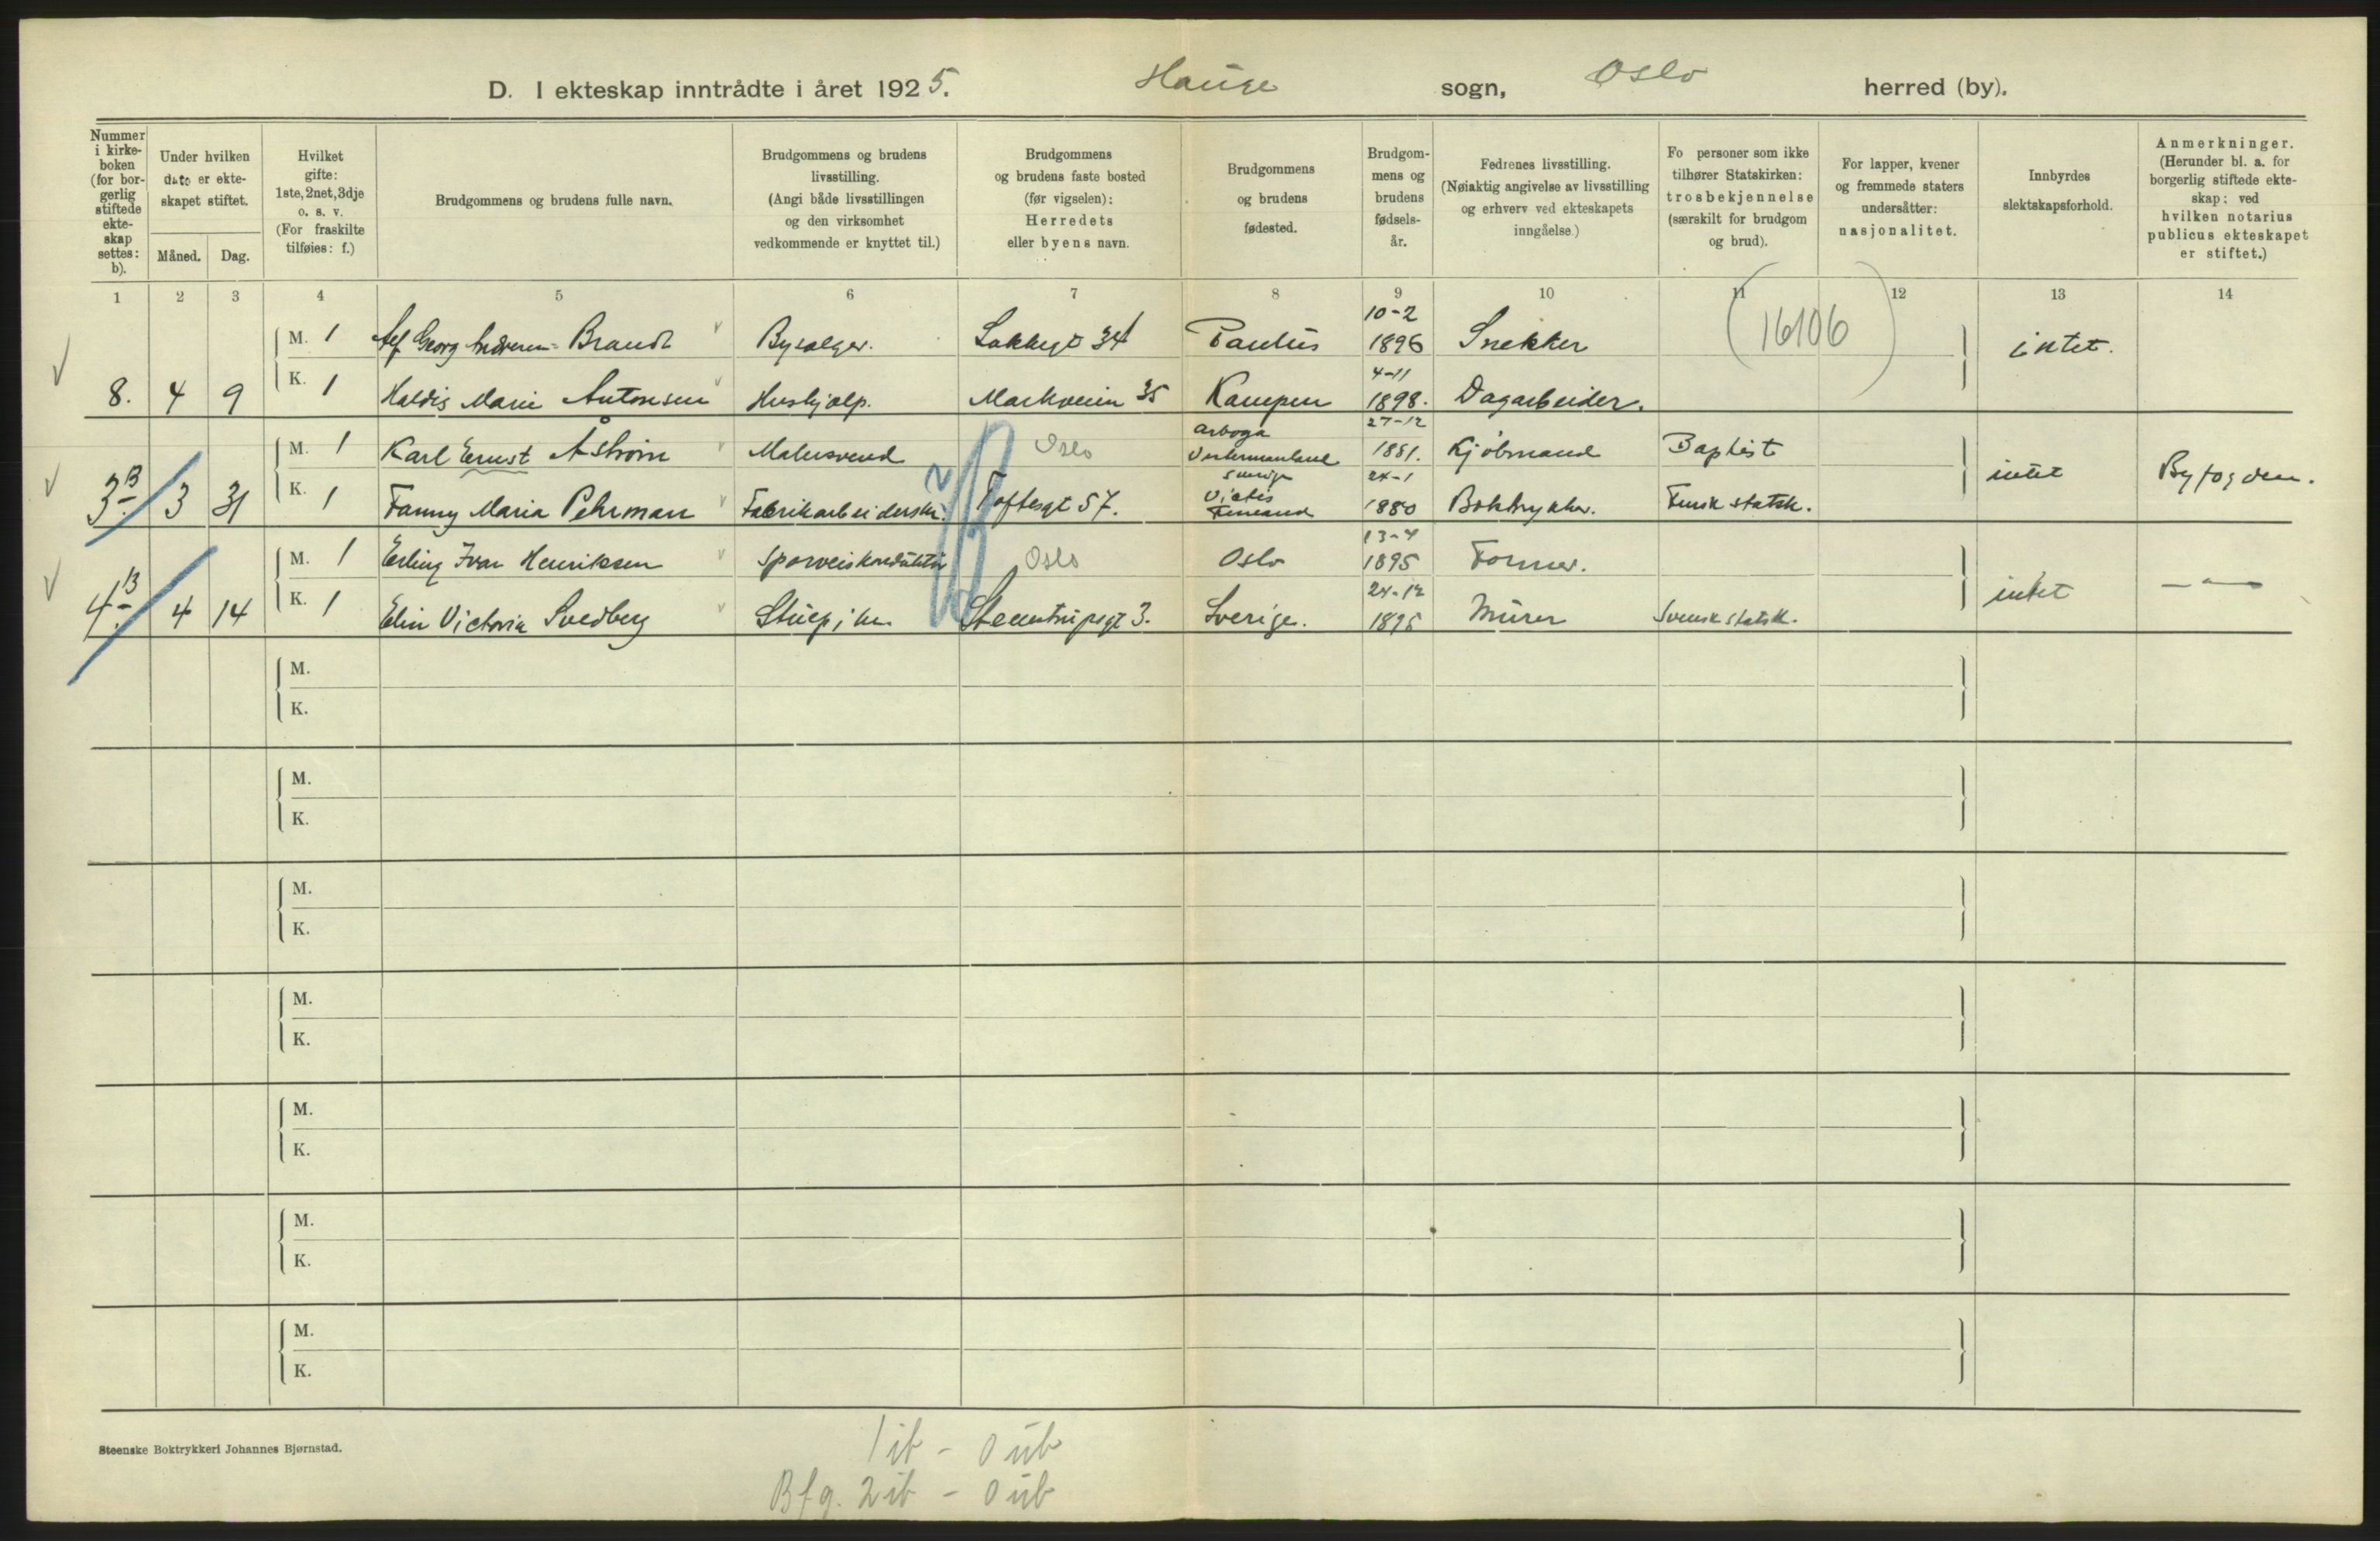 D. I ekteskap inntrådte i året 1925. Hauge sogn, Oslo herred (by).
Nummer i kirke-boken (for bor-gerlig stiftede ekte-skap settes: b).
Under hvilken dato er ekte-skapet stiftet.
Måned. Dag.
Hvilket gifte: 1ste, 2net, 3dje o. s. v. (For fraskilte tilføies: f.)
Brudgommens og brudens fulle navn.
Brudgommens og brudens livsstilling. (Angi både livsstillingen og den virksomhet vedkommende er knyttet til.)
Brudgommens og brudens faste bosted (før vigselen): Herredets eller byens navn.
Brudgommens og brudens fødested.
Brudgom-mens og brudens fødsels-år.
Fedrenes livsstilling. (Nøiaktig angivelse av livsstilling og erhverv ved ekteskapets inngåelse.)
Fo personer som ikke tilhører Statskirken: trosbekjennelse (særskilt for brudgom og brud).
For lapper, kvener og fremmede staters undersåtter: nasjonalitet.
Innbyrdes slektskapsforhold.
Anmerkninger. (Herunder bl. a. for borgerlig stiftede ekte-skap: ved hvilken notarius publicus ekteskapet er stiftet.)
1 2 3 4 5 6 7 8 9 10 11 12 13 14
(16106)
10-2
M. 1 Georg Brandt Byselger. 34 Paulus 1896 Snekker intet.
4-11
8. 4 9 K. 1 Haldis Marie Antonsen Hushjelp. Markveien 35 Kampen 1898. Dagarbeider.
27-12
M. 1 Karl Ernst Åström Malersvend Oslo Arboga Sverige 1881. Kjöbmand Baptist intet Byfogden.
24-1
3 B 3 31 K. 1 Fanny Maria Pehrman Fabrikarbeiderske. Toftesgt 57. Finland 1880 Boktrykker. Finsk statsk.
13-4
M. 1 Erling Ivar Henriksen Sporveiskonduktör Oslo Oslo 1895 Former. intet — " —
24-12
4 B 4 14 K. 1 Elin Victoria Svedberg Stuepike Steenstrupsgt 3. Sverige. 1895 Murer Svensk statsk.
M.
K.
M.
K.
M.
K.
M.
K.
M.
K.
M.
K.
M.
K.
Steenske Boktrykkeri Johannes Bjørnstad.
1 ib - 0 ub
Bfg. 2 ib - 0 ub